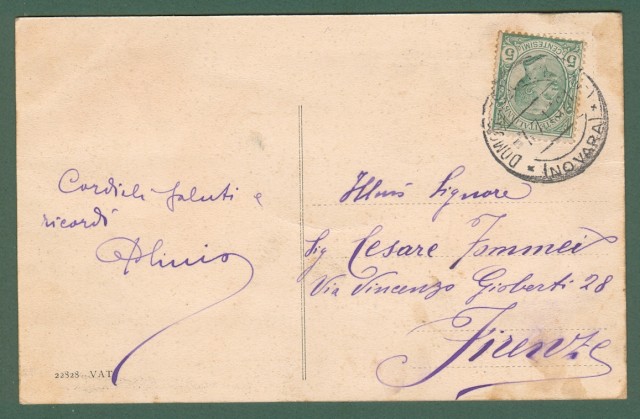 Cordiali saluti e
ricordi
Plinio
22828 VAT
CENTESIMI
5 5
DOMO
* (NOVARA) *
Illmo Signore
Sig Cesare Tommei
Via Vincenzo Gioberti 28
Firenze